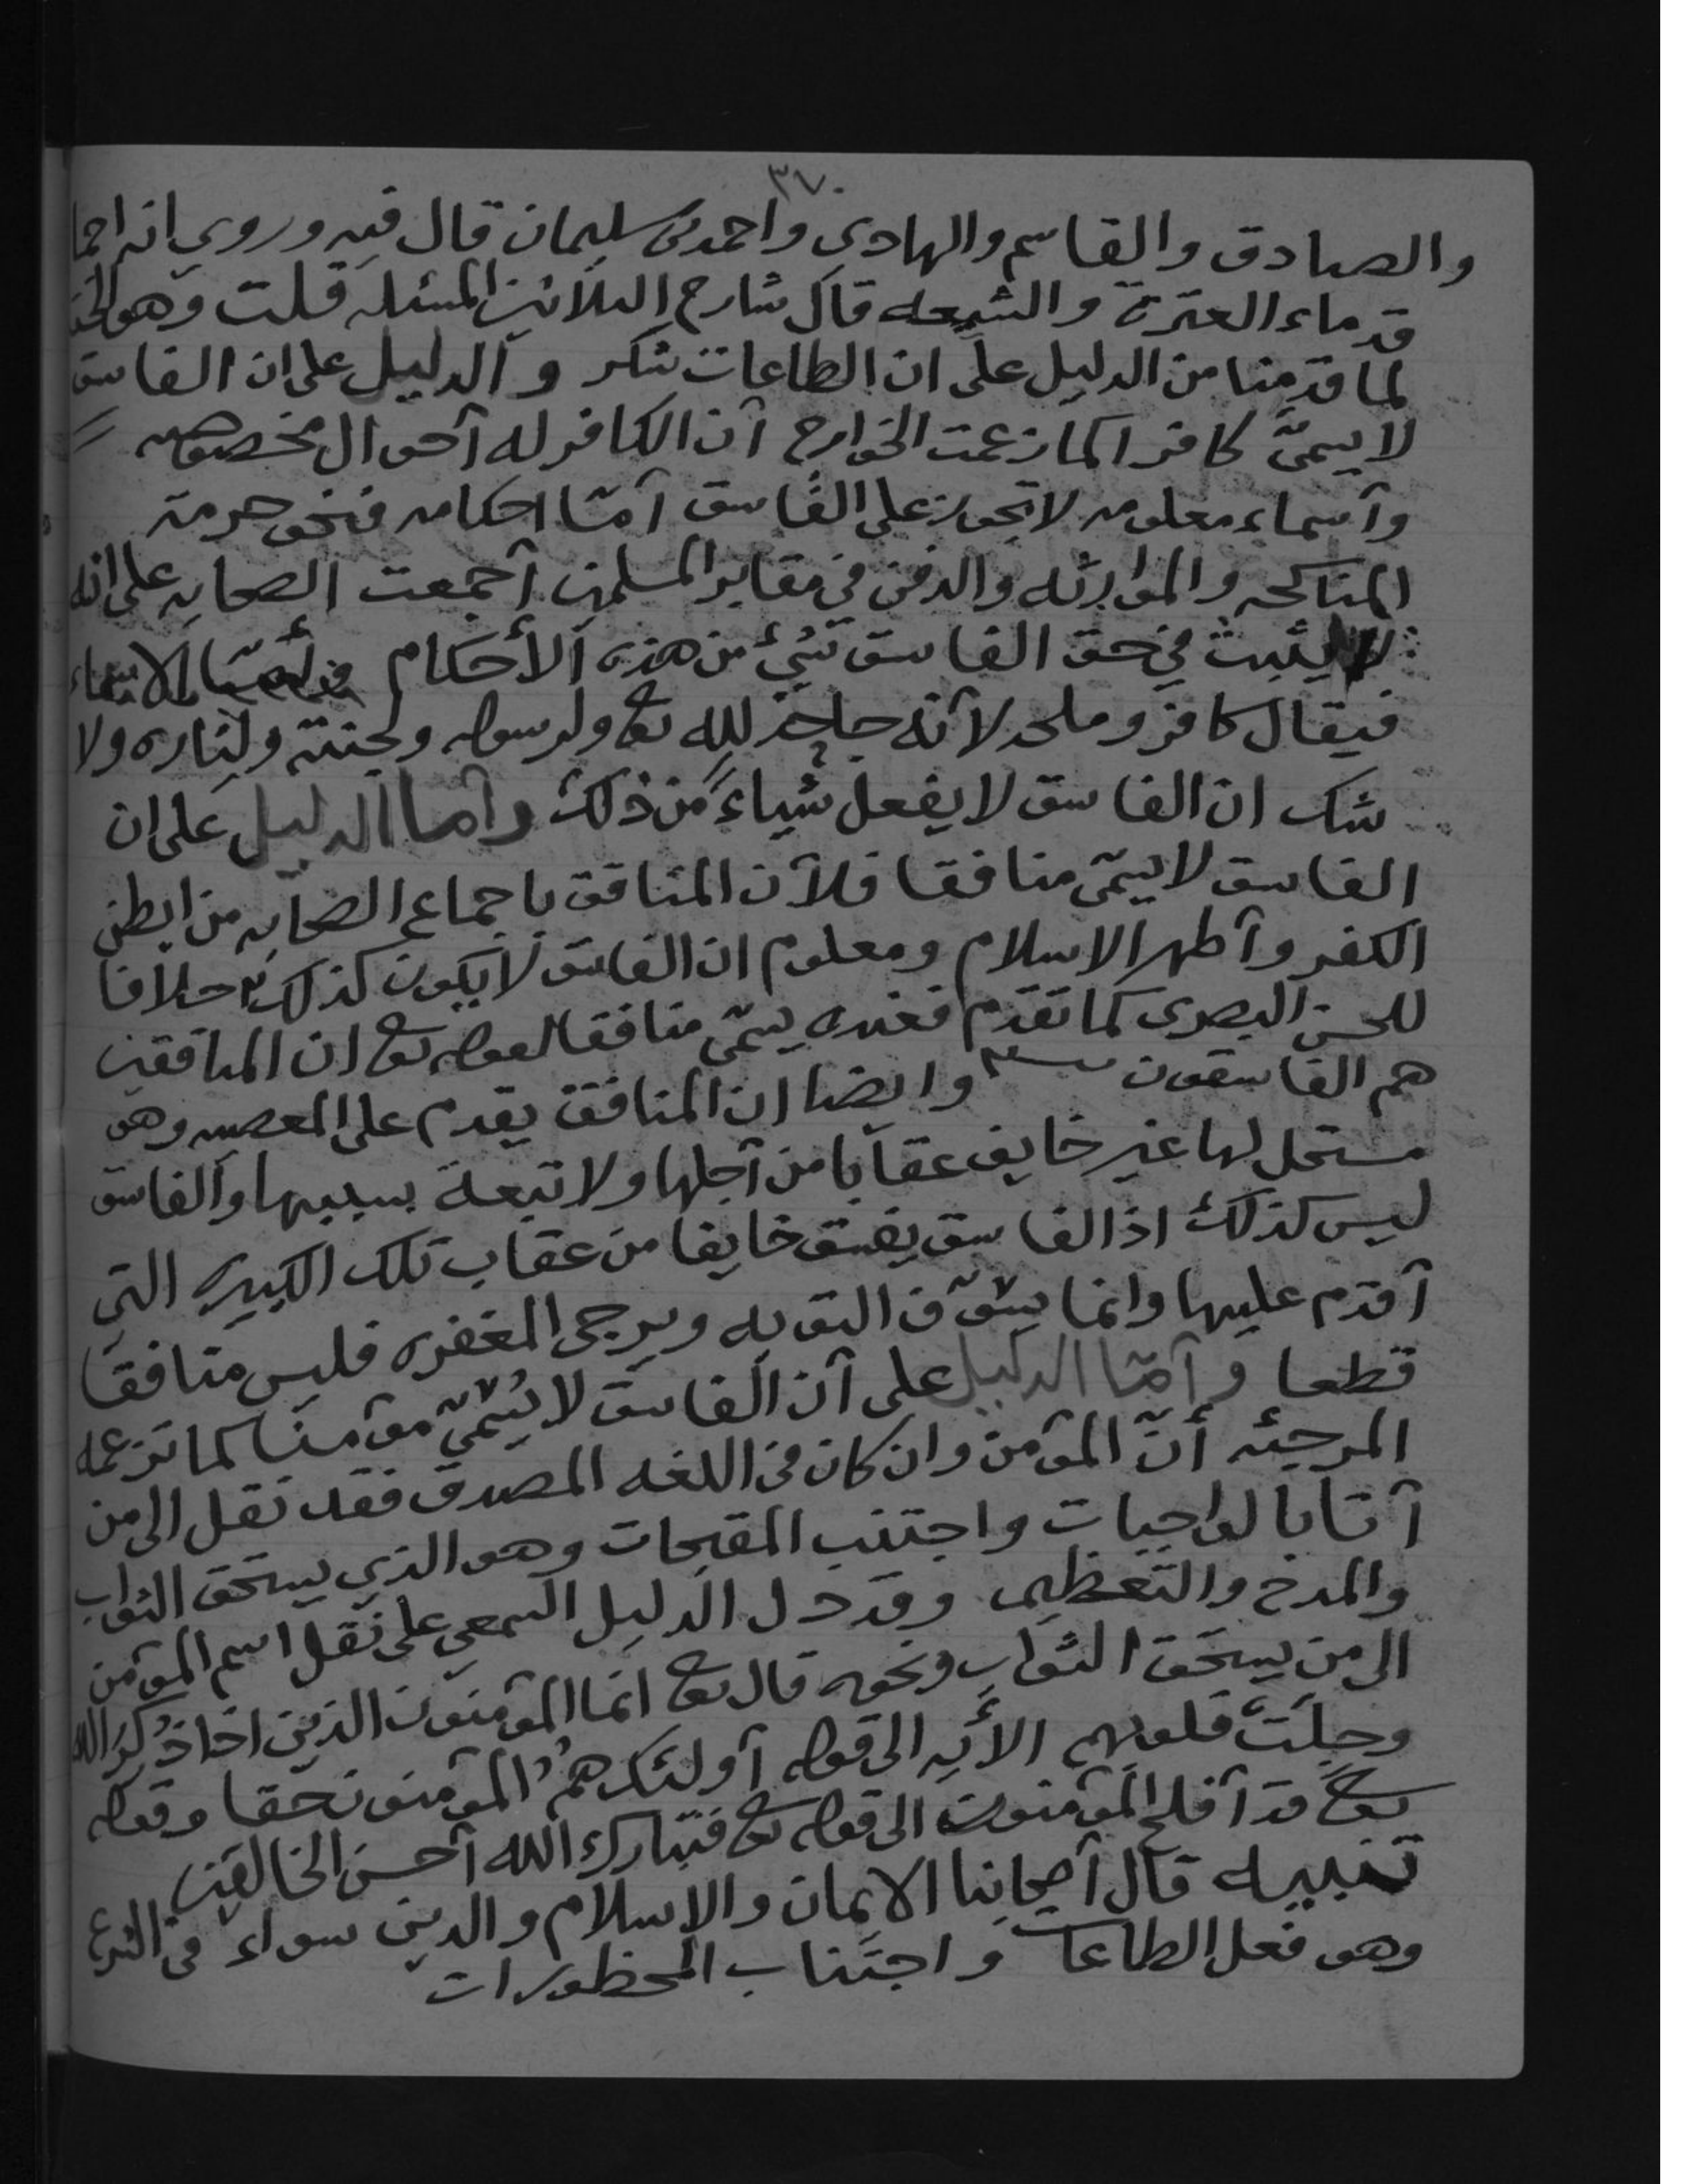 ٣٧٠
والصادق والقاسم والهادي واحمد بن سليمان قال فيه وروي انه اجما
قدماء العترة والشيعه قال شارح الثلاثين المسئله قلت وهو الحق
لما قدمنا من الدليل على ان الطاعات شكر والدليل على ان الفاسق
لا يسمىّ كافرا كما زعمت الخوارج آن الكافر له آحوال مخصوصه
وآسماء معلومه لا تجوز على الفاسق آمّا احكامه فنحو حرمة
المناكحه والموارثه والدفن في مقابر المسلمين آجمعت الصحابه على انه
لا يثبت في حق الفاسق شيئ من هذه الأحكام وأمّا الاسماء
فيقال كافر وملحد لآنه جاحد لله تع ولرسوله ولجنته ولناره ولا
شك ان الفاسق لا يفعل شياءً من ذلك وآما الدليل على ان
الفاسق لا يسمّى منافقا فلآن المنافق باجماع الصحابه من ابطن
الكفر وآظهر الاسلام ومعلوم ان الفاسق لا يكون كذلك خلافا
للحسن البصرى كما تقدم فعنده يسمّى منافقا لقوله تع ان المنافقين
هم الفاسقون وايضا ان المنافق يقدم على المعصيه وهو
مستحل لها غير خايف عقابا من آجلها ولا تبعة بسببها والفاسق
ليس كذلك اذ الفاسق يفسق خايفا من عقاب تلك الكبيره التي
آقدم عليها وانما يسوّف التوبه ويرجى المغفره فليس منافقا
قطعا وآمّا الدليل على آن الفاسق لا يُسمّىّ موٓمنا كما تزعمه
المرجئه أنّ الموٓمن وان كان في اللغه المصدق فقد نقل الى من
آتا بالواجبات واجتنب المقبحات وهو الذي يستحق الثواب
والمدح والتعظيم وقد دل الدليل السمعي على نقل اسم الموٓمن
الى من يستحق الثواب ونحوه قال تع انما الموٓمنون الذين اذا ذُكِرَ الله
وجلَتْ قلوبهم الأيه الى قوله آولئك همُ الموٓمنون حقا وقوله
تع قد آفلح الموٓمنون الى قوله تع فتبارك الله آحسن الخالقين
تنبيه قال آصحابنا الايمان والاسلام والدين سواء في الشرع
وهو فعل الطاعات واجتناب المحظورات